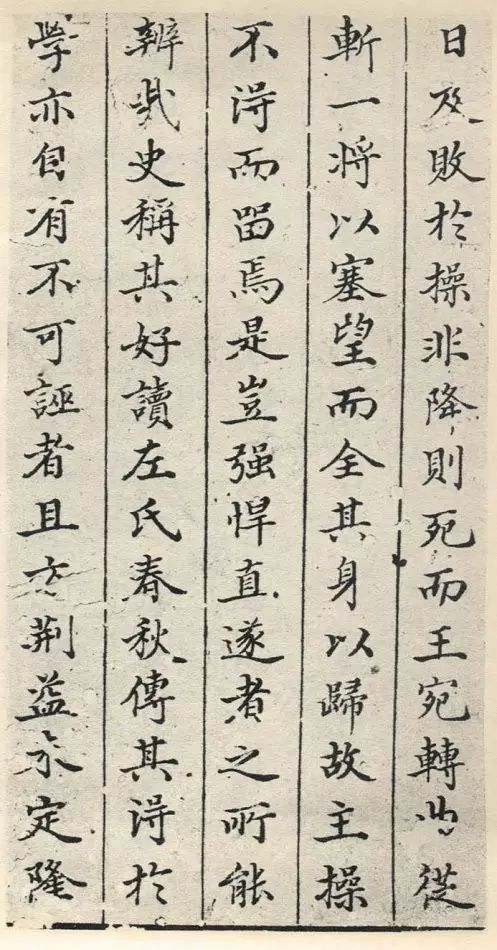 日及敗於操非降則死而王宛轉少從
斬一将以塞望而全其身以歸故主操
不淂而留焉是豈强悍直遂者之所能
辨哉史稱其好讀左氏春秋傳其淂於
學亦自有不可誣者且方荆益未定隆